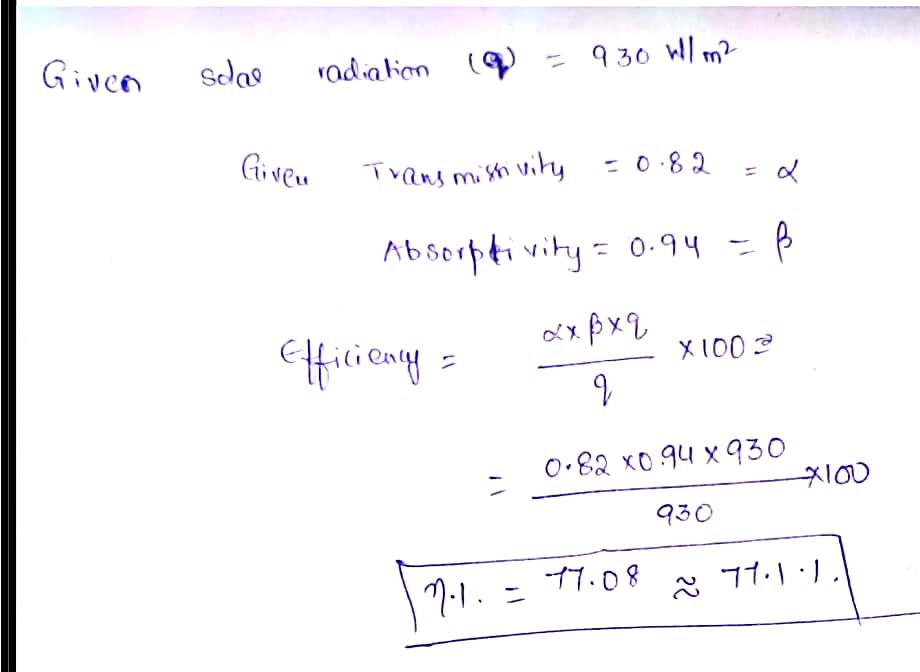 Given solar radiation (q) = 930 W/m²
Given Transmissivity = 0.82 = α
Absorptivity = 0.94 = β
Efficiency = α×β×q / q ×100 =
= 0.82 ×0.94 × 930 / 930 ×100
η%. = 77.08 ≈ 77.1 %.